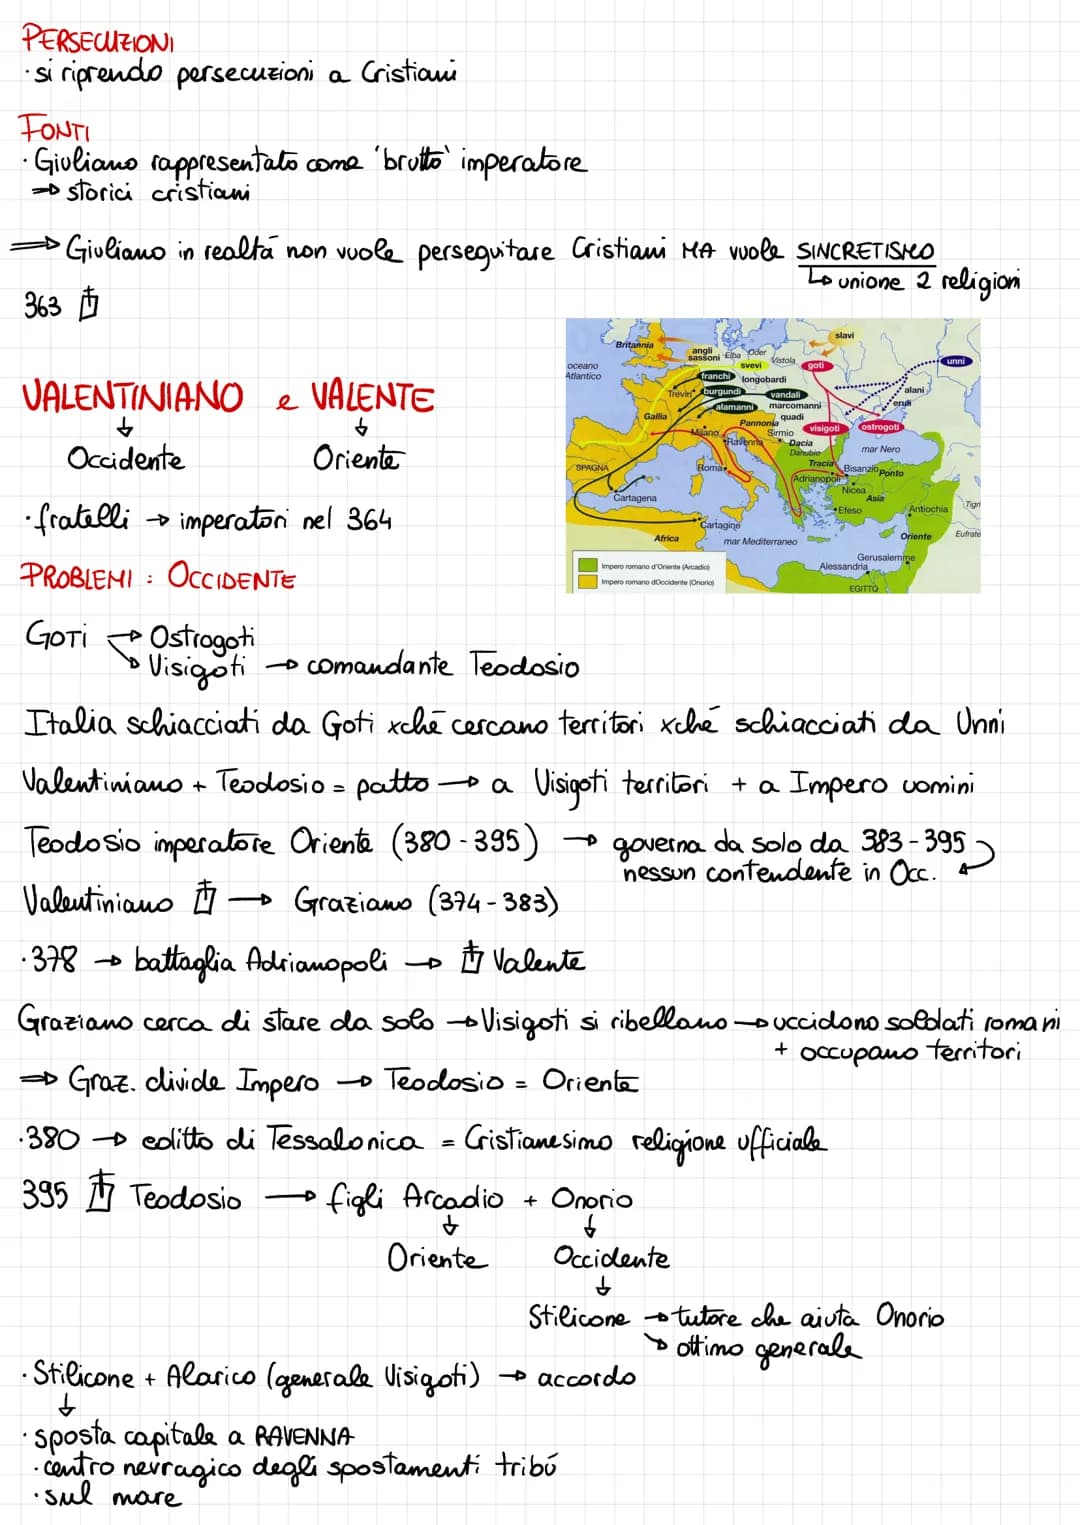 PERSECUZIONI
· si riprendo persecuzioni a Cristiani
FONTI
· Giuliano rappresentato come 'brutto' imperatore
→ storici cristiani
⇒ Giuliano in realtà non vuole perseguitare Cristiani MA vuole SINCRETISMO
↳ unione 2 religioni
363 ✝
VALENTINIANO e VALENTE
↓ ↓
Occidente Oriente
· fratelli → imperatori nel 364
PROBLEMI : OCCIDENTE
slavi
Britannia
angli
sassoni
Elba
Oder
Vistola
svevi
goti
unni
oceano
Atlantico
franchi
longobardi
Treviri
burgundi
vandali
alani
eruli
alamanni
marcomanni
quadi
Gallia
Pannonia
Sirmio
visigoti
ostrogoti
Milano
Ravenna
Dacia
Danubio
mar Nero
SPAGNA
Roma
Tracia
Bisanzio
Ponto
Adrianopoli
Nicea
Asia
Cartagena
Efeso
Antiochia
Tigri
Cartagine
Africa
mar Mediterraneo
Oriente
Eufrate
Gerusalemme
Alessandria
EGITTO
Impero romano d'Oriente (Arcadio)
Impero romano dOccidente (Onorio)
GOTI → Ostrogoti
→ Visigoti → comandante Teodosio
Italia schiacciati da Goti xchē cercano territori xché schiacciati da Unni
Valentiniano + Teodosio = patto → a Visigoti territori + a Impero uomini
Teodosio imperatore Oriente (380-395) → governa da solo da 383-395
nessun contendente in Occ.
Valentiniano ✝ → Graziano (374-383)
· 378 → battaglia Adrianopoli → ✝ Valente
Graziano cerca di stare da solo → Visigoti si ribellano → uccidono soldati romani
+ occupano territori
⇒ Graz. divide Impero → Teodosio = Oriente
· 380 → editto di Tessalonica = Cristianesimo religione ufficiale
395 ✝ Teodosio → figli Arcadio + Onorio
↓ ↓
Oriente Occidente
↓
Stilicone → tutore che aiuta Onorio
↘ ottimo generale
· Stilicone + Alarico (generale Visigoti) → accordo
↓
· sposta capitale a RAVENNA
· centro nevragico degli spostamenti tribú
· sul mare